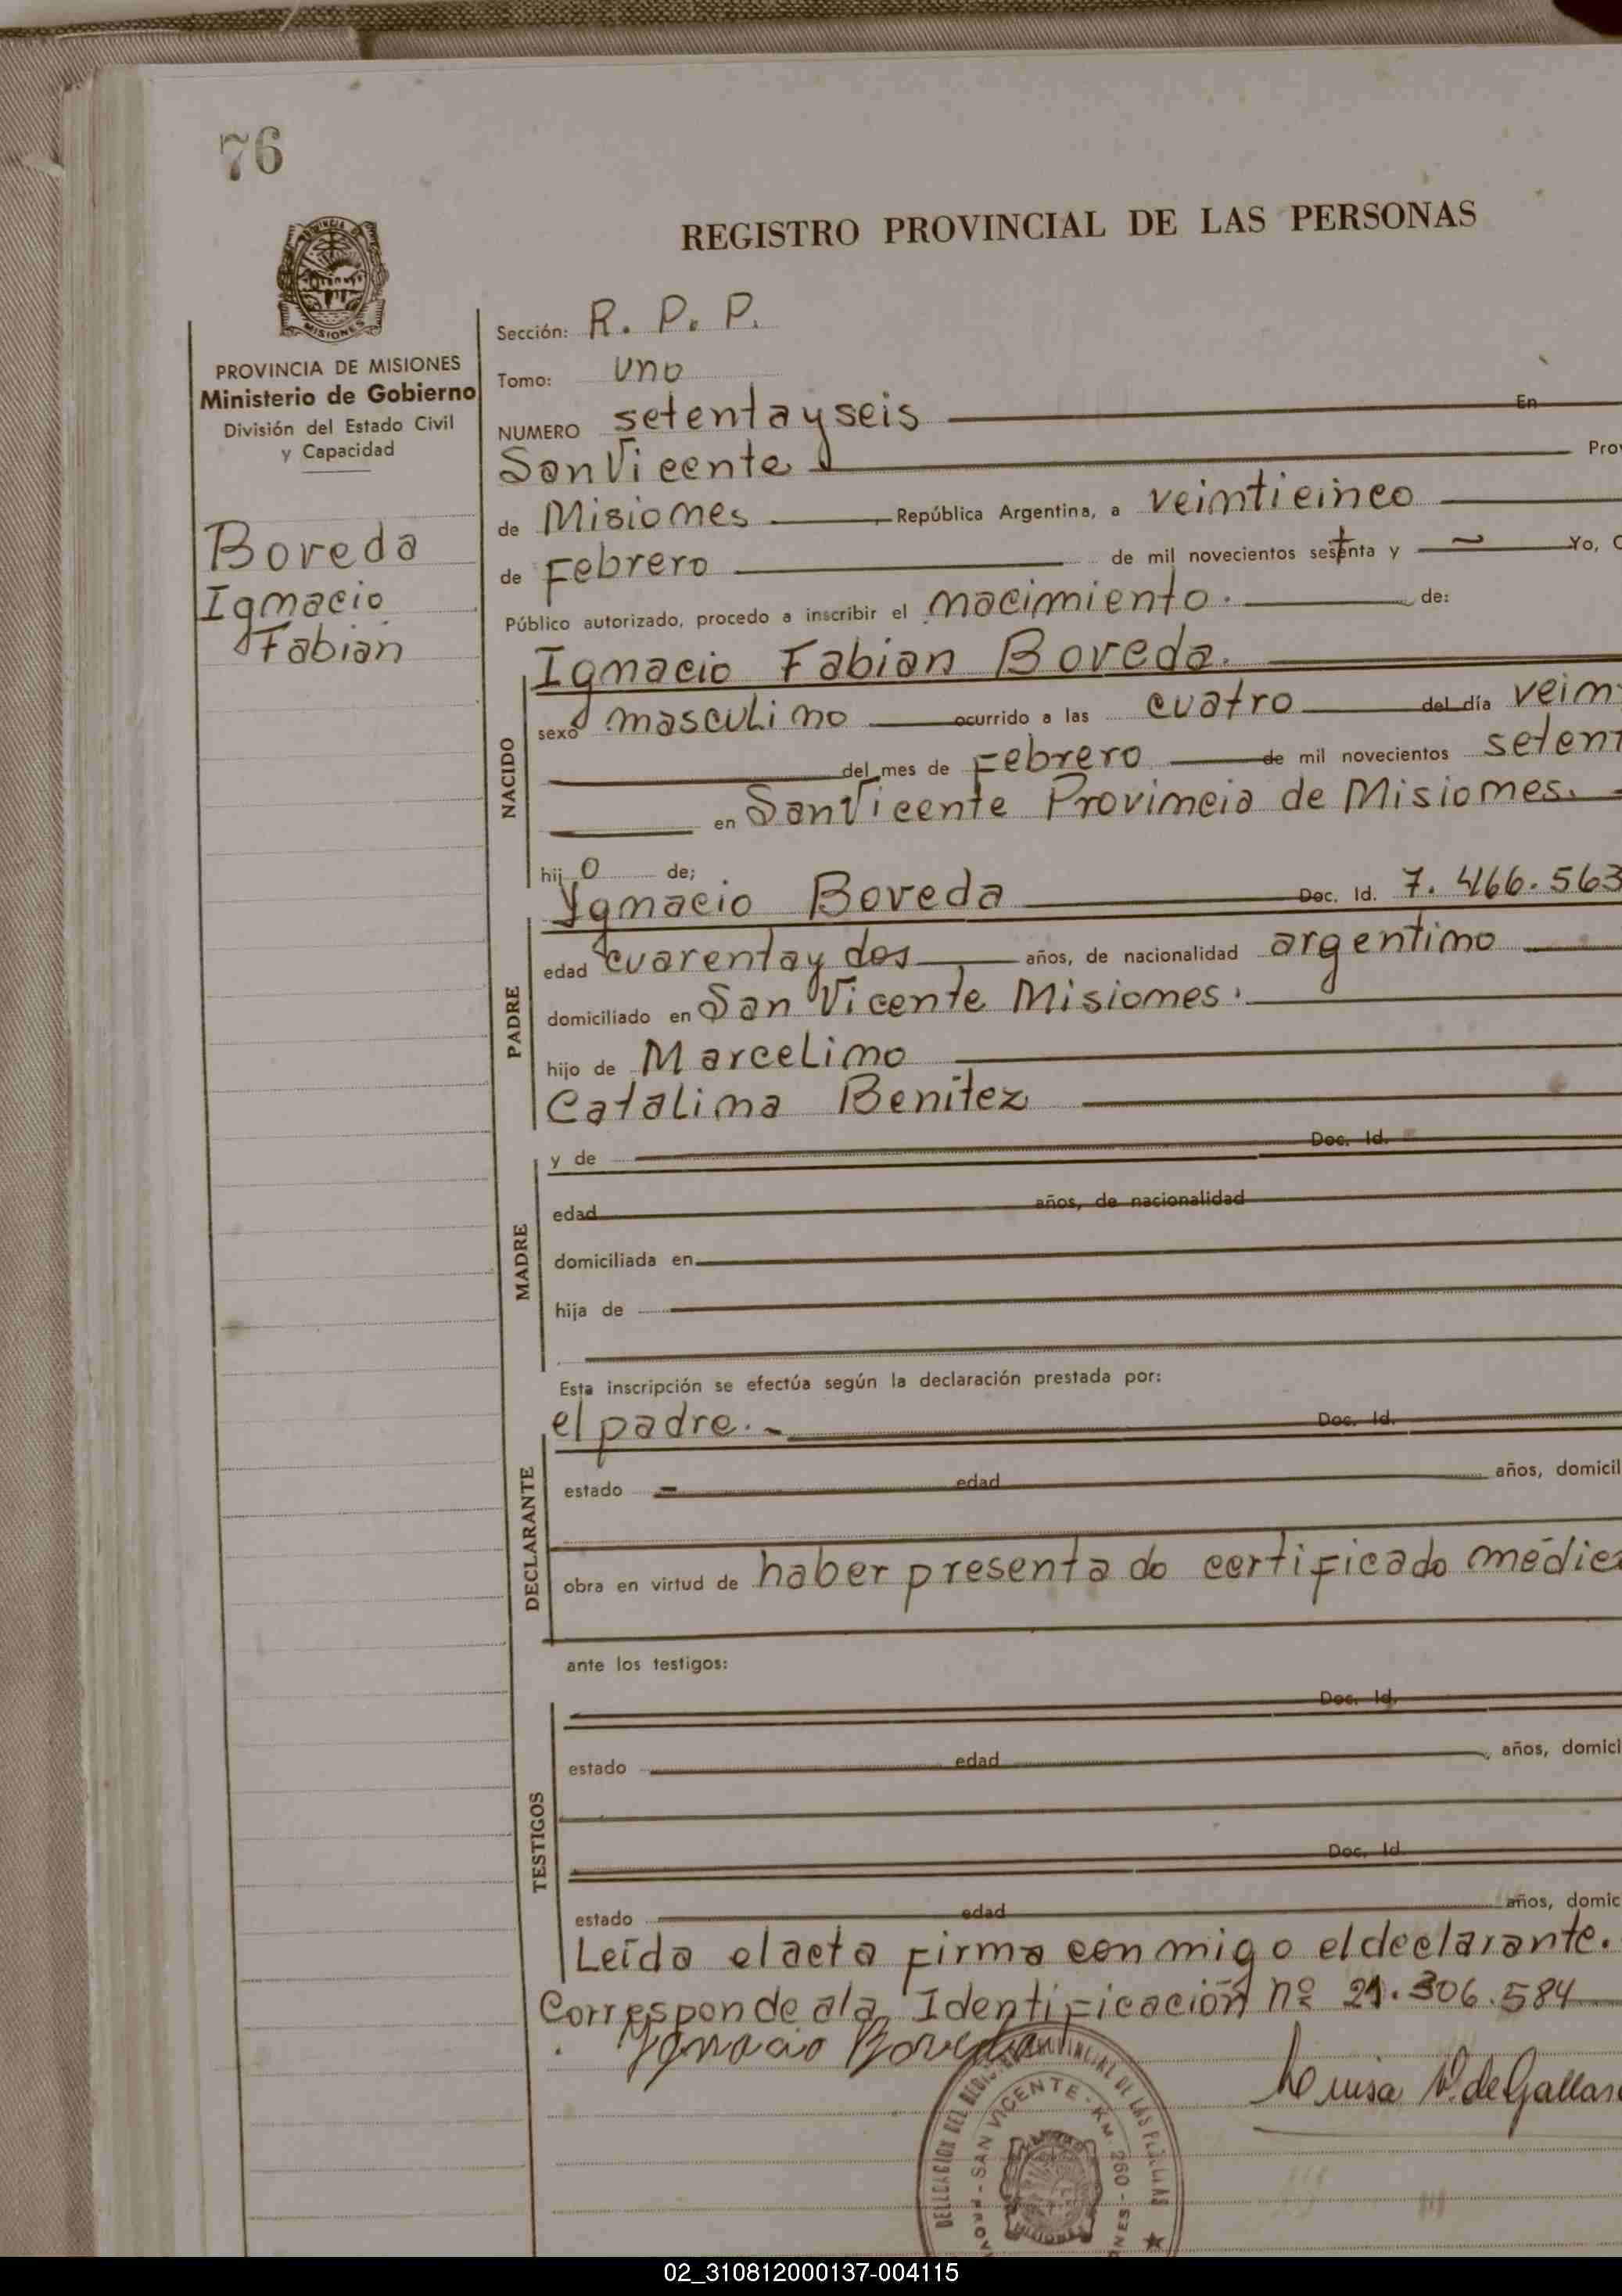 76
REGISTRO PROVINCIAL DE LAS PERSONAS
MISIONES
PROVINCIA DE MISIONES
Ministerio de Gobierno
División del Estado Civil
y Capacidad
Boveda
Ignacio
Fabian
Sección: R. P. P.
Tomo: uno
NUMERO setenta y seis En
San Vicente Pro
de Misiones, República Argentina, a veinticinco
de Febrero de mil novecientos sesenta y Yo,
Público autorizado, procedo a inscribir el nacimiento. de:
Ignacio Fabian Boveda.
NACIDO
sexo masculino ocurrido a las cuatro del día vein
del mes de Febrero de mil novecientos seten
en San Vicente Provincia de Misiones.
hijo de;
PADRE
Ygnacio Boveda Doc. Id. 7.466.563
edad cuarenta y dos años, de nacionalidad argentino
domiciliado en San Vicente Misiones.
hijo de Marcelino
Catalina Benítez
MADRE
y de Doc. Id.
edad años, de nacionalidad
domiciliada en
hija de
Esta inscripción se efectúa según la declaración prestada por:
DECLARANTE
el padre.- Doc. Id.
estado - edad años, domicil
obra en virtud de haber presentado certificado médic
ante los testigos:
TESTIGOS
Doc. Id.
estado edad, años, domici
Doc. Id.
estado edad años, domic
Leída el acta firma conmigo el declarante.
Corresponde a la Identificación nº 21.306.584
Ygnacio Boveda
Luisa de Gallar
DELEGACION DEL REGISTRO PROVINCIAL DE LAS
SAN VICENTE - KM. 260 -
02_310812000137-004115